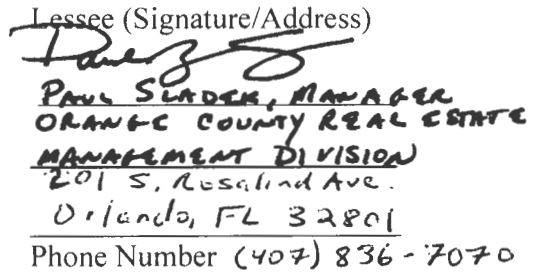 Lessee (Signature/Address)
PAUL SLADEK, MANAGER
ORANGE COUNTY REAL ESTATE
MANAGEMENT DIVISION
201 S. Rosalind Ave.
Orlando, FL 32801
Phone Number (407) 836-7070